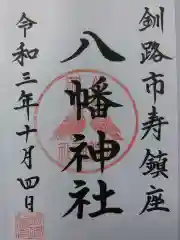 釧路市寿鎮座
八幡神社
令和三年十月四日